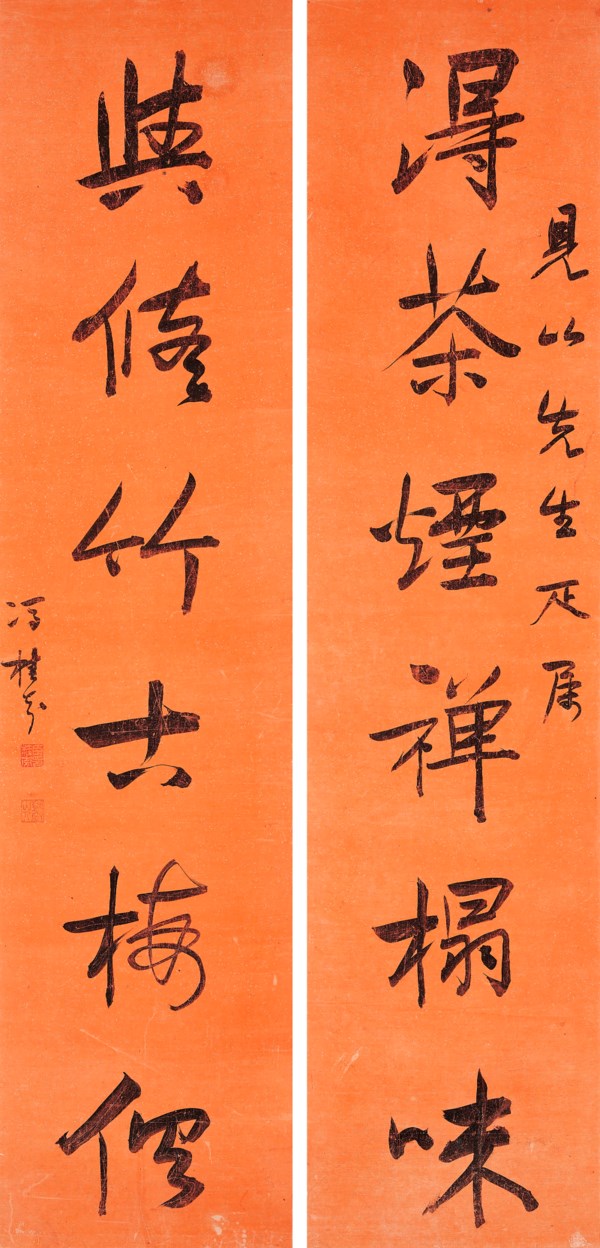 見山先生疋属
得茶煙禪榻味
與脩竹古梅俱
馮桂芬